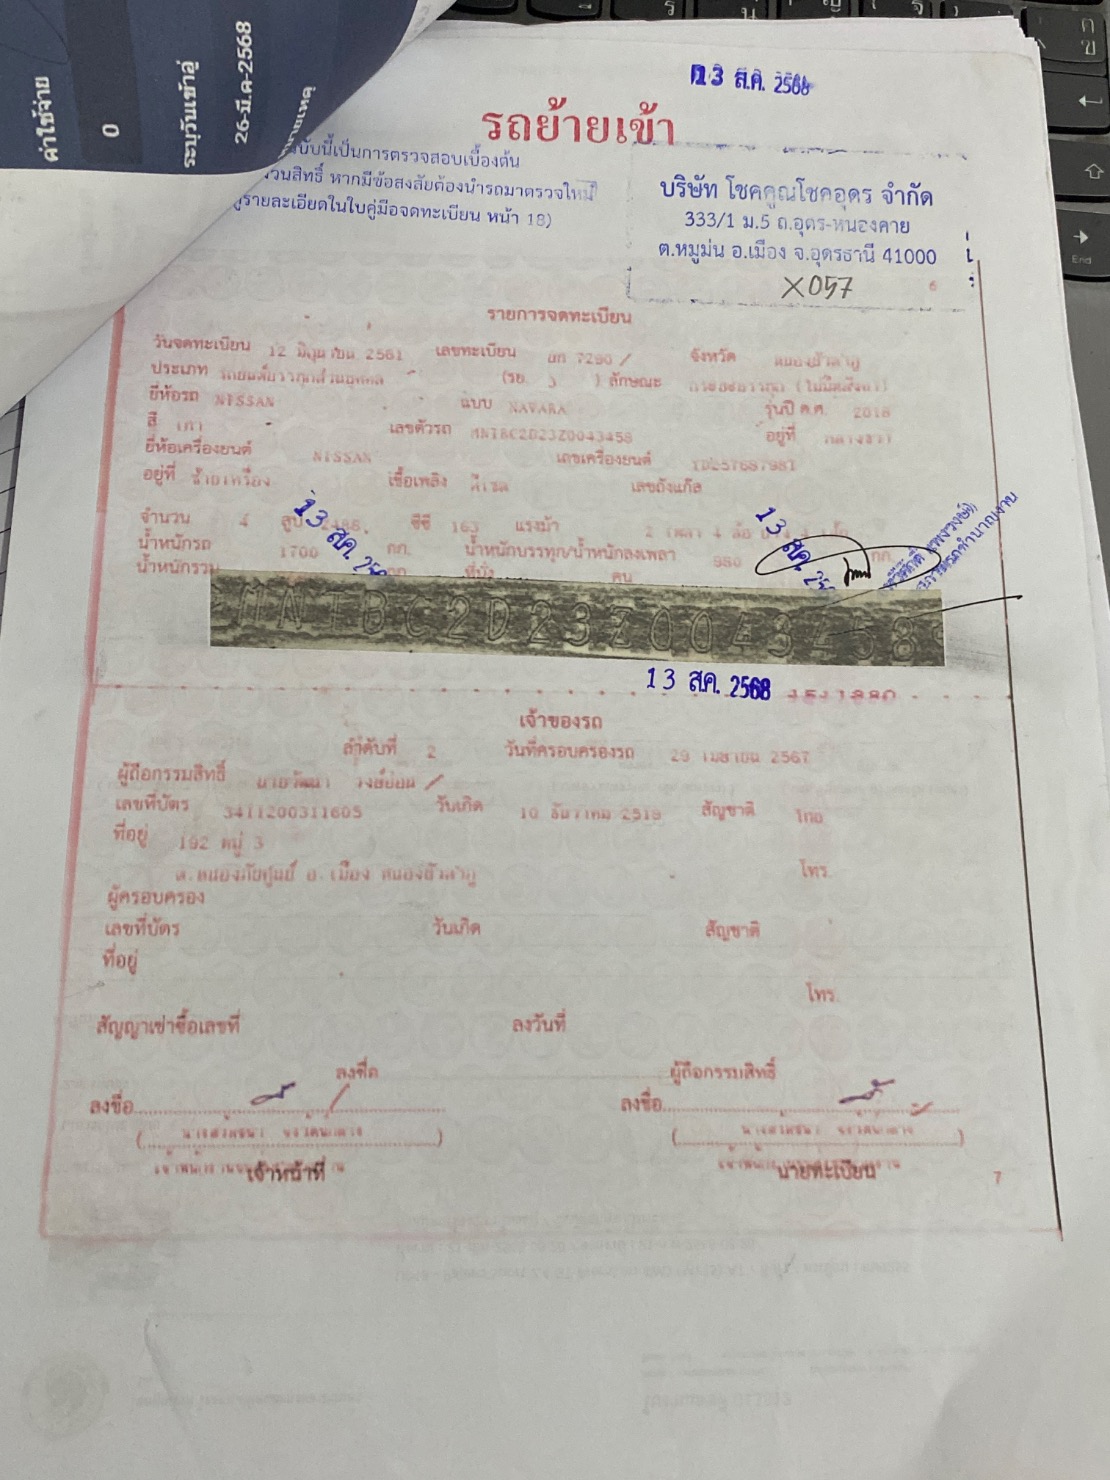 ค่าใช้จ่าย
0
ระบุวันเข้าอู่
26-มี.ค-2568
13 ส.ค. 2568
รถย้ายเข้า
ฉบับนี้เป็นการตรวจสอบเบื้องต้น
หากมีข้อสงสัยต้องนำรถมาตรวจใหม่
รายละเอียดในใบคู่มือจดทะเบียน หน้า 18)
บริษัท โชคคูณโชคอุดร จำกัด
333/1 ม.5 ถ.อุดร-หนองคาย
ต.หมูม่น อ.เมือง จ.อุดรธานี 41000
X057
6
รายการจดทะเบียน
วันจดทะเบียน 12 มิถุนายน 2561 เลขทะเบียน 7290 / จังหวัด หนองบัวลำภู
ประเภท รถยนต์บรรทุกส่วนบุคคล (รย. 3 ) ลักษณะ กระบะบรรทุก (ไม่มีหลังคา)
ยี่ห้อรถ NISSAN แบบ NAVARA รุ่นปี ค.ศ. 2018
สี เทา เลขตัวรถ MNTBC2D23Z0043458 อยู่ที่ กลางขวา
ยี่ห้อเครื่องยนต์ NISSAN เลขเครื่องยนต์
อยู่ที่ ซ้ายเครื่อง เชื้อเพลิง ดีเซล เลขถังแก๊ส
จำนวน 4 สูบ 2488 ซีซี 163 แรงม้า 2 เพลา 4 ล้อ ยาง 4 เส้น
น้ำหนักรถ 1700 กก. น้ำหนักบรรทุก/น้ำหนักลงเพลา 980 กก.
น้ำหนักรวม กก. ที่นั่ง คน
13 ส.ค.
13 ส.ค.
MNTBC2D23Z0043458
13 ส.ค. 2568
เจ้าของรถ
ลำดับที่ 2 วันที่ครอบครองรถ 29 เมษายน 2567
ผู้ถือกรรมสิทธิ์ นายวัฒนา /
เลขที่บัตร 3411200311605 วันเกิด 10 ธันวาคม 2519 สัญชาติ ไทย
ที่อยู่ 192 หมู่ 3
ต.หนองภัยศูนย์ อ.เมือง หนองบัวลำภู โทร.
ผู้ครอบครอง
เลขที่บัตร วันเกิด สัญชาติ
ที่อยู่
โทร.
สัญญาเช่าซื้อเลขที่ ลงวันที่
ลงชื่อ ผู้ถือกรรมสิทธิ์
ลงชื่อ ลงชื่อ
เจ้าหน้าที่ นายทะเบียน
7